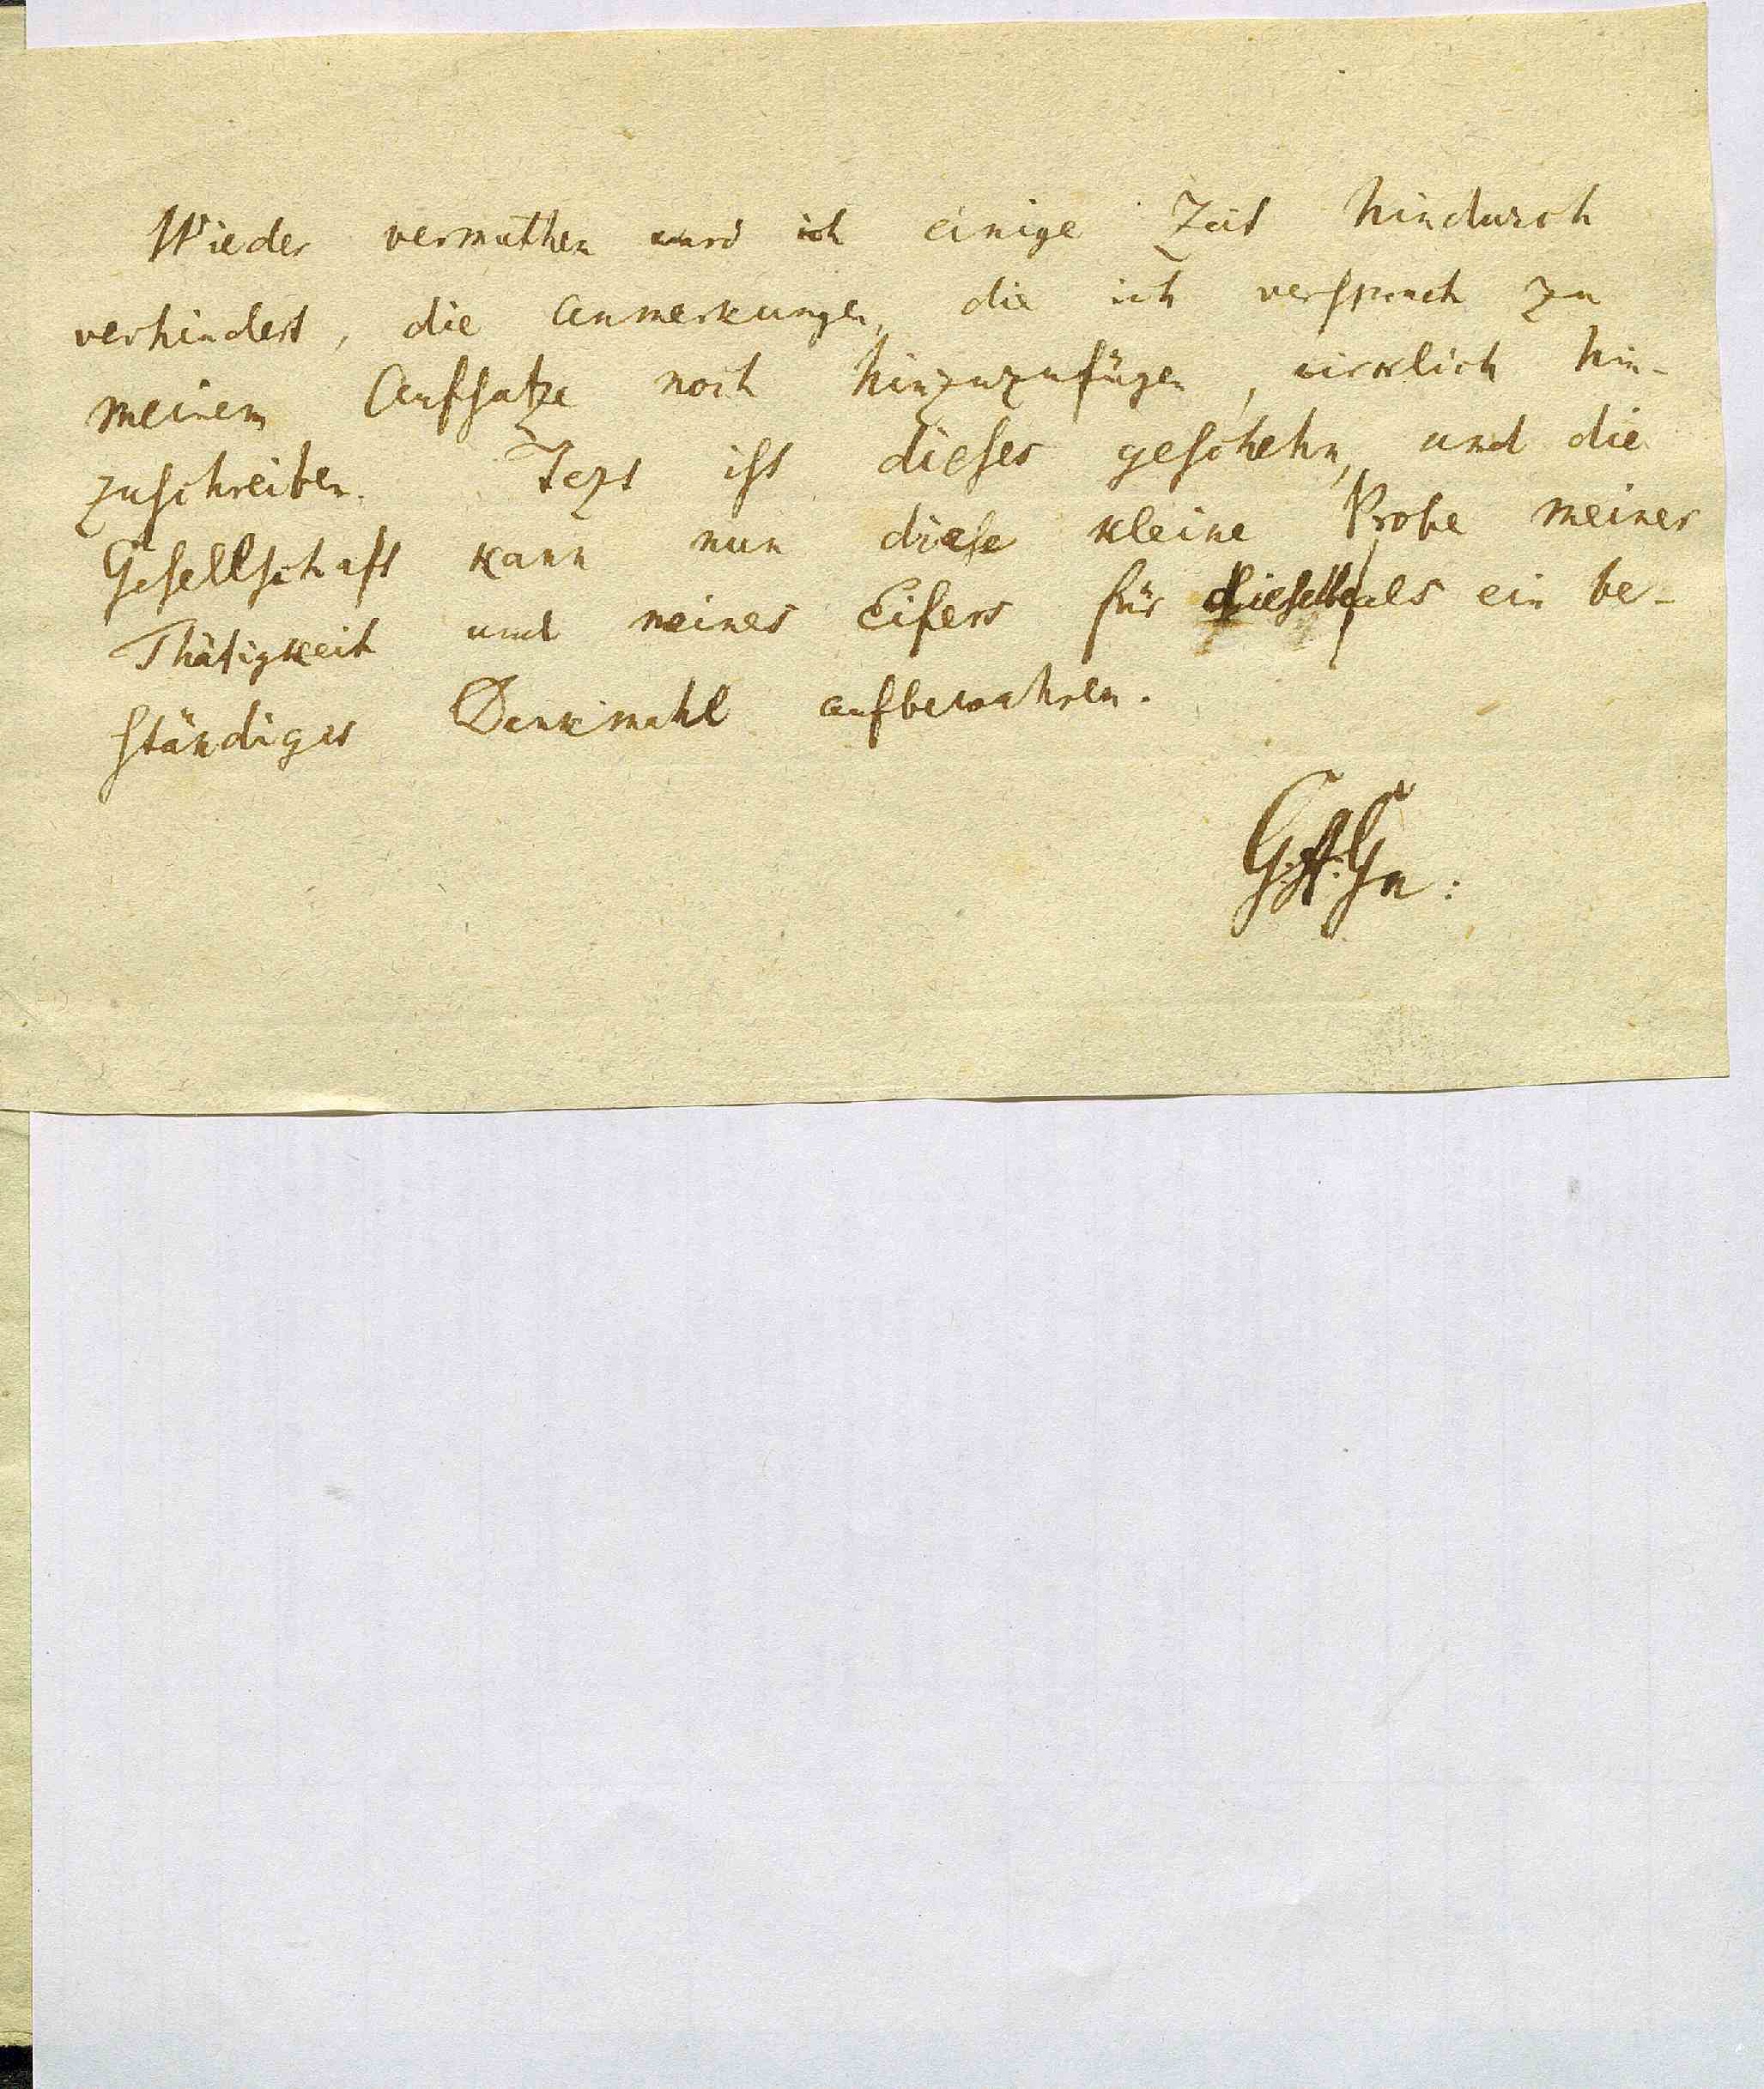 Wieder vermuthen ward ich einige Zeit hindurch
verhindert, die Anmerkungen, die ich versprach zu
meinem Aufsatze noch hinzuzufügen, wirklich hin-
zuschreiben. Jezt ist dieses geschehn, und die
Gesellschaft kann nun diese kleine Probe meiner
Thätigkeit und meines Eifers für dieselbe als ein be-
ständiges Denkmahl aufbewahren.
G. A. Gr: